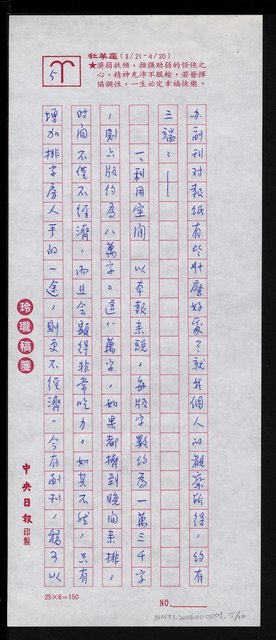 牡羊座(3/21-4/20)
★濟弱扶傾、挫強助弱的任俠之
心，精神充沛不服輸，若發揮
協調性，一生必定幸福快樂。
5
办副刊对報紙有些什麼好處？就我個人的観察所得，約有
三端：——
一、利用空间 以本報来說，每版字數约為一萬三千字
，則六版约為八萬字。這八萬字，如果都擠到晚间来排，
时间不僅不經濟，而且会顯得非常吃力。如其不然，只有
增加排字房人手的一途，則更不經濟。今有副刊，稿可以
玲瓏稿箋
中央日報印製
25×6=150
NO.
NMTL20060110001, 5/10